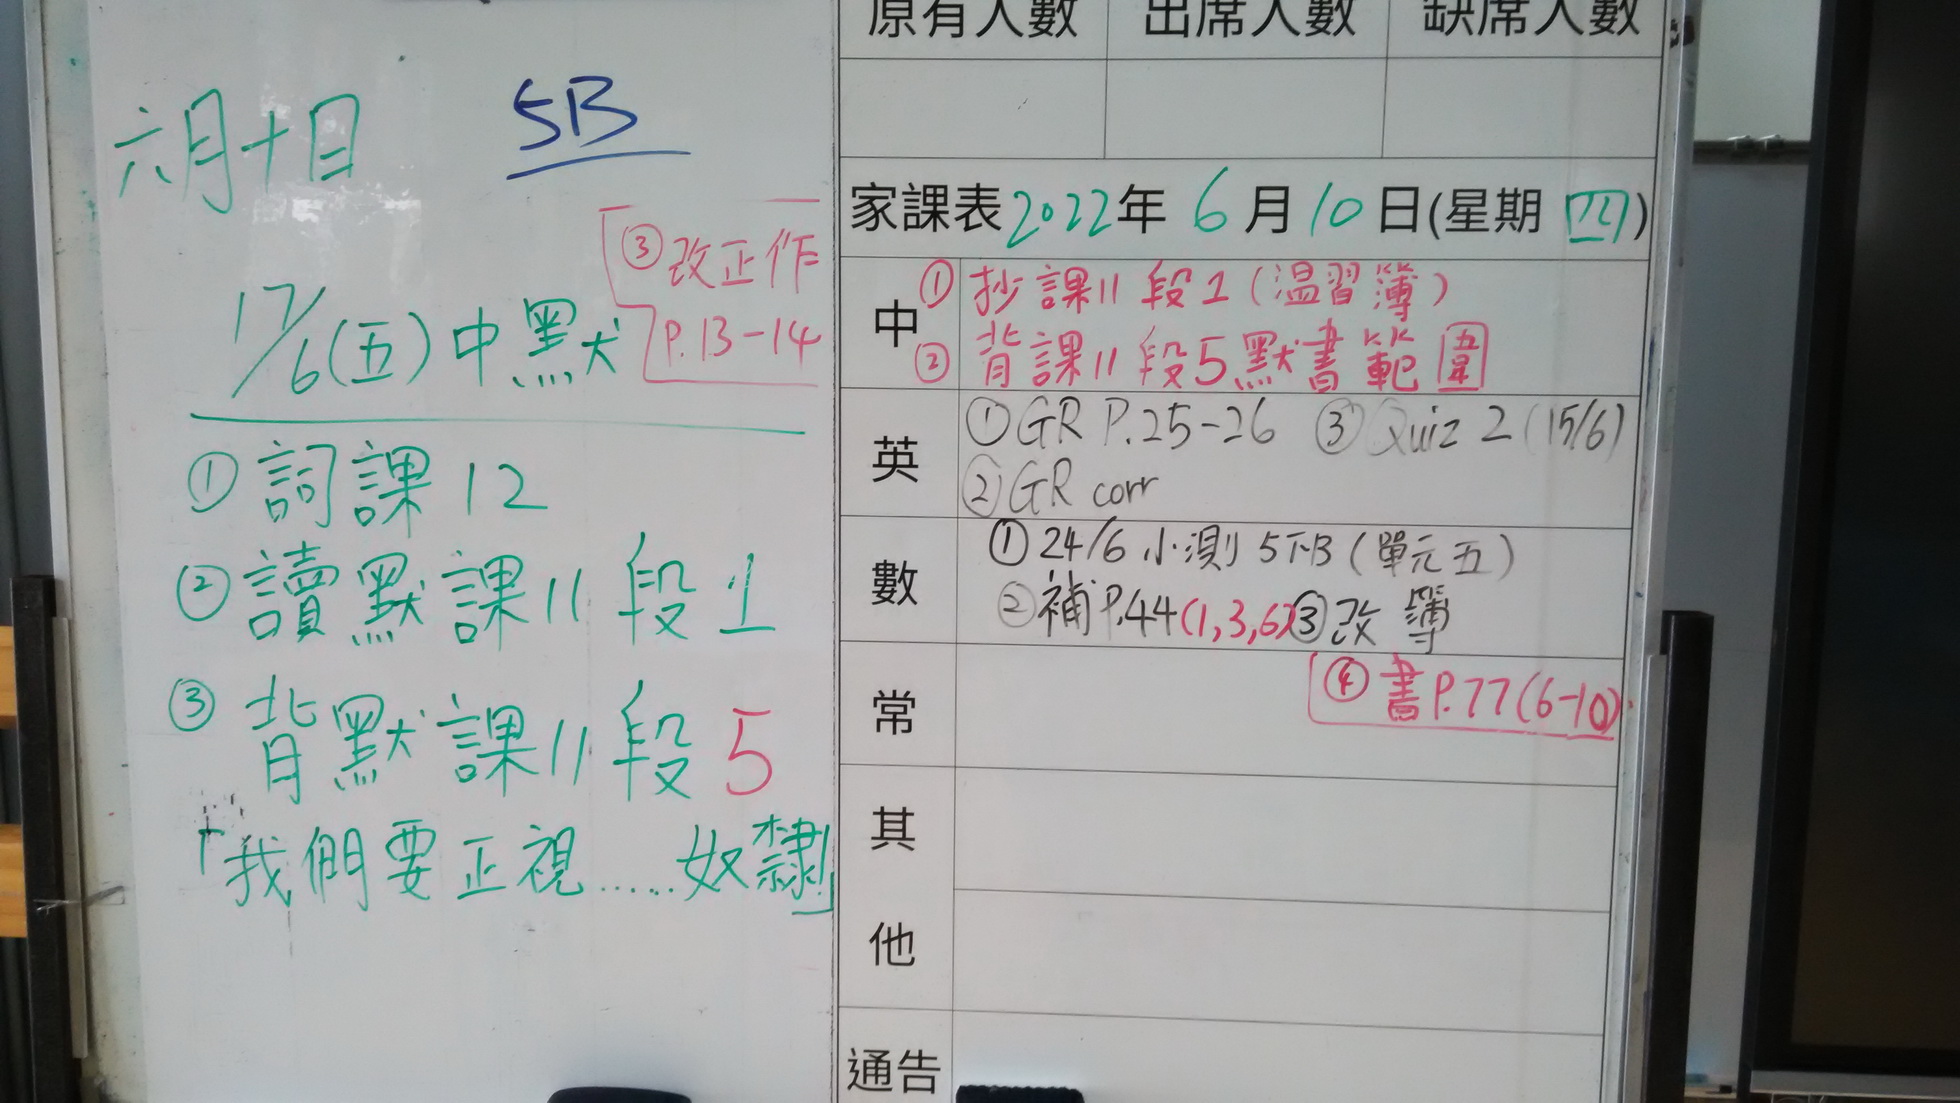 六月十日
5B
③改正作
P.13-14
17/6(五)中默
①詞課12
②讀默課11段1
③背默課11段5
「我們要正視……奴隸」
原有人數 出席人數 缺席人數
家課表2022年6月10日(星期四)
中 ①抄課11段1(温習簿)
②背課11段5默書範圍
英 ①GR P.25-26 ③Quiz 2 (15/6)
②GR corr
數 ①24/6小測5下B(單元五)
②補P.44(1,3,6)③改簿
④書P.77(6-10)
常
其
他
通告